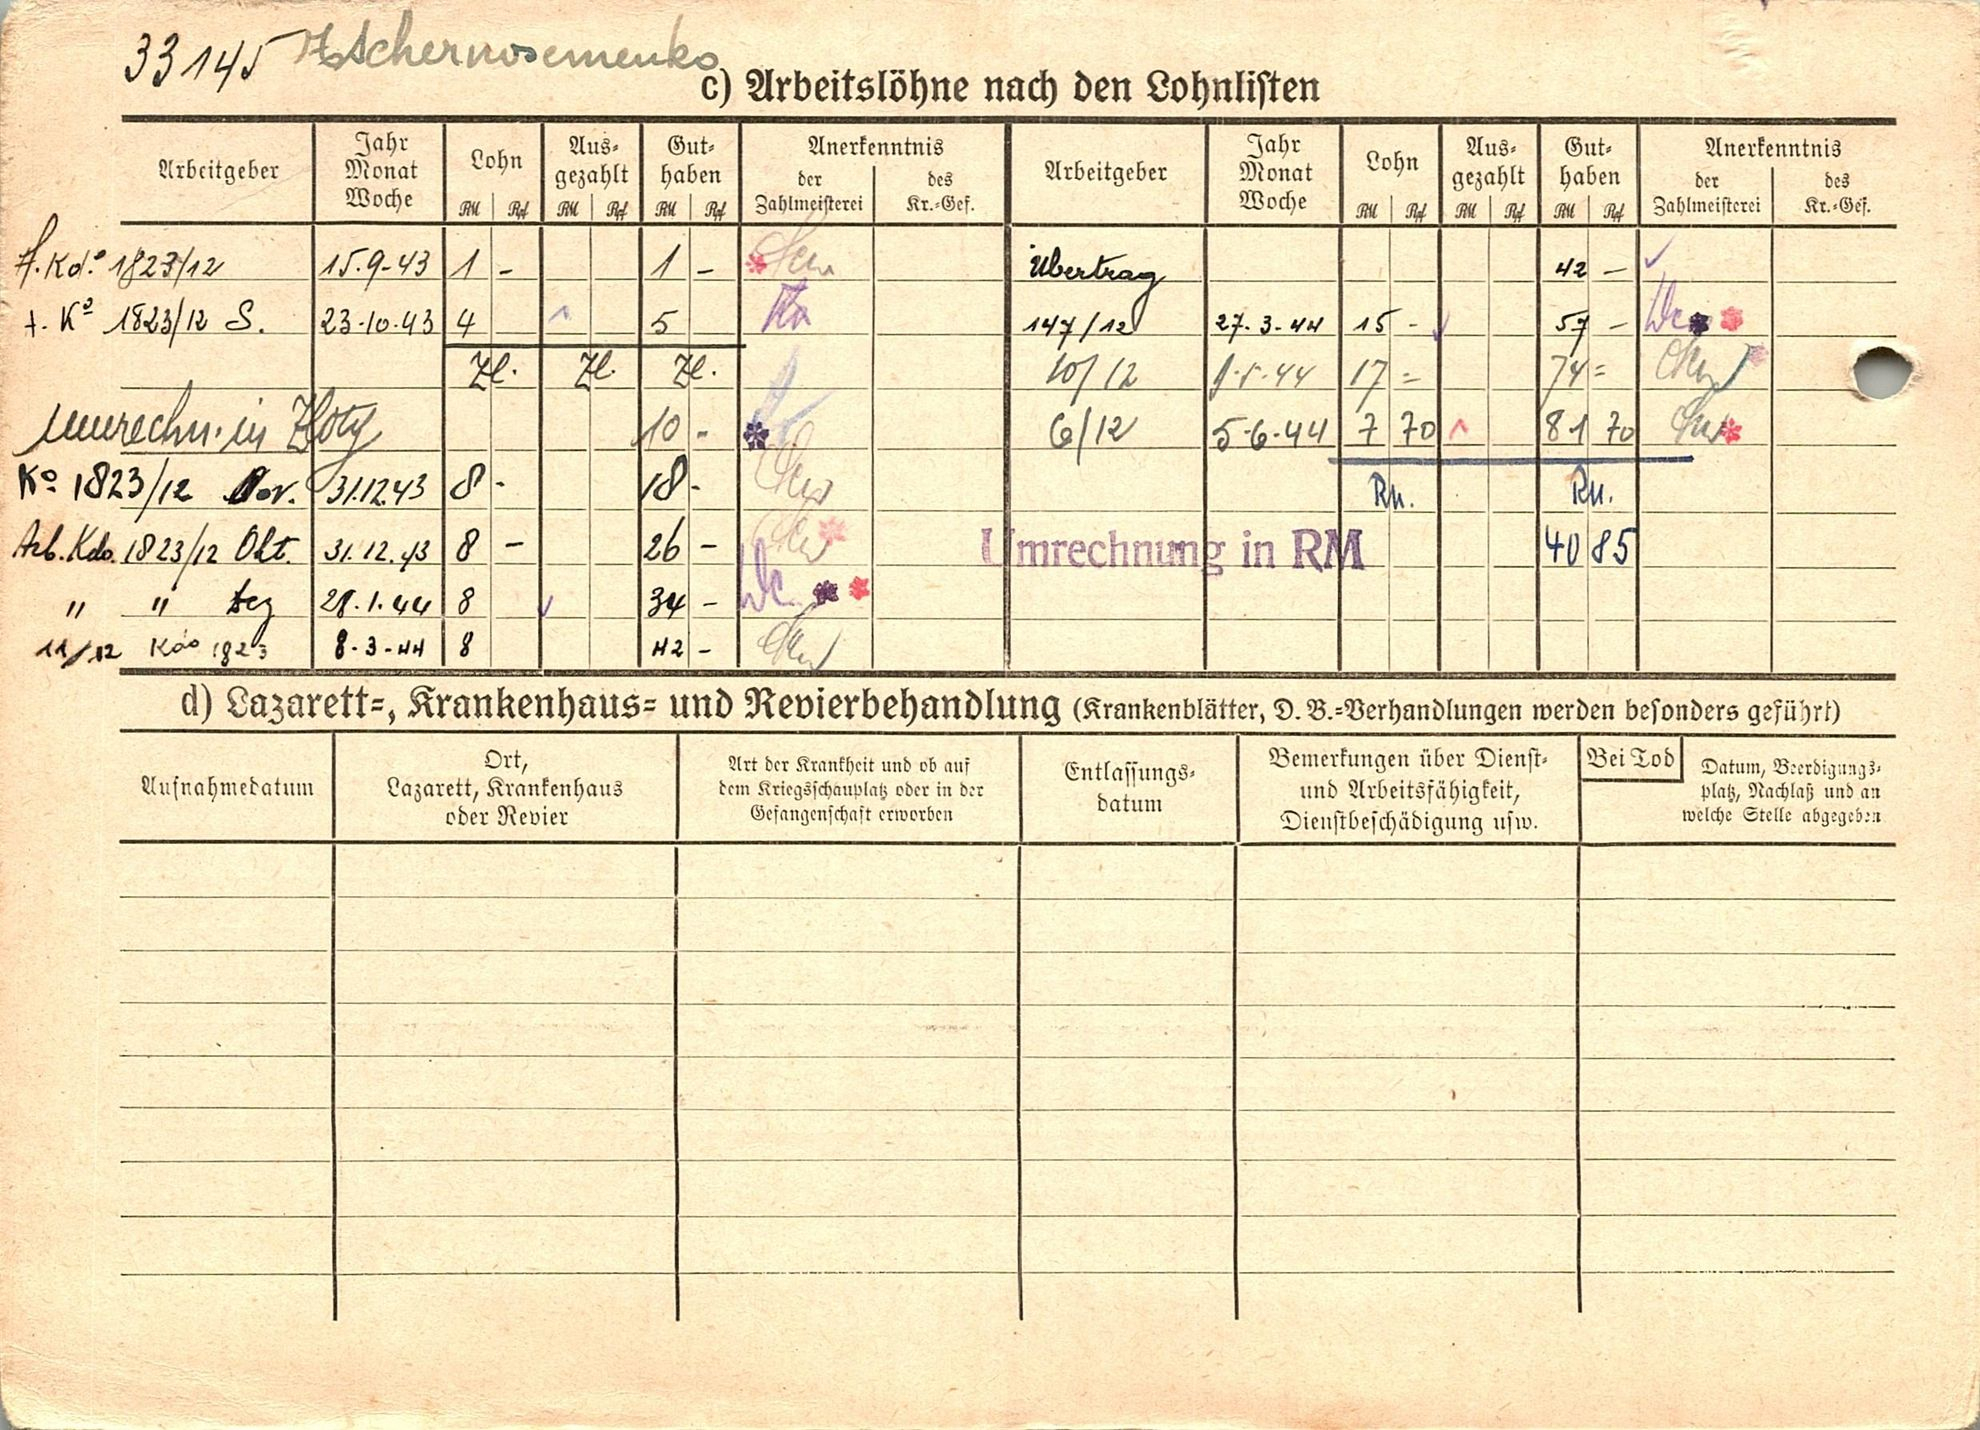 33145 Tschernosemenko
c) Arbeitslöhne nach den Lohnlisten
Arbeitgeber Jahr Monat Woche Lohn RM Rpf Aus-gezahlt RM Rpf Gut-haben RM Rpf Anerkenntnis der Zahlmeisterei des Kr.-Gef. Arbeitgeber Jahr Monat Woche Lohn RM Rpf Aus-gezahlt RM Rpf Gut-haben RM Rpf Anerkenntnis der Zahlmeisterei des Kr.-Gef.
A.Kdo 1823/12 15.9-43 1 - 1 - Übertrag 42 -
1823/12 S. 23-10-43 4 5 147/12 27.3-44 15 - 57 -
Zl. Zl. Zl. 10/12 44 17 = 74 =
umrechn. in Zloty 10 - 6/12 5-6-44 7 70 81 70
Ko 1823/12 Nov. 31.12.43 8 - 18 - RM. RM.
Arb. Kdo. 1823/12 Okt. 31.12.43 8 - 26 - Umrechnung in RM 40 85
" " Dez 28.1.44 8 34 -
11/12 Kdo 1823 8-3-44 8 42 -
d) Lazarett-, Krankenhaus- und Revierbehandlung (Krankenblätter, D. B.-Verhandlungen werden besonders geführt)
Aufnahmedatum Ort, Lazarett, Krankenhaus oder Revier Art der Krankheit und ob auf dem Kriegsschauplatz oder in der Gefangenschaft erworben Entlassungs-datum Bemerkungen über Dienst- und Arbeitsfähigkeit, Dienstbeschädigung usw. Bei Tod Datum, Beerdigungs-platz, Nachlaß und an welche Stelle abgegeben